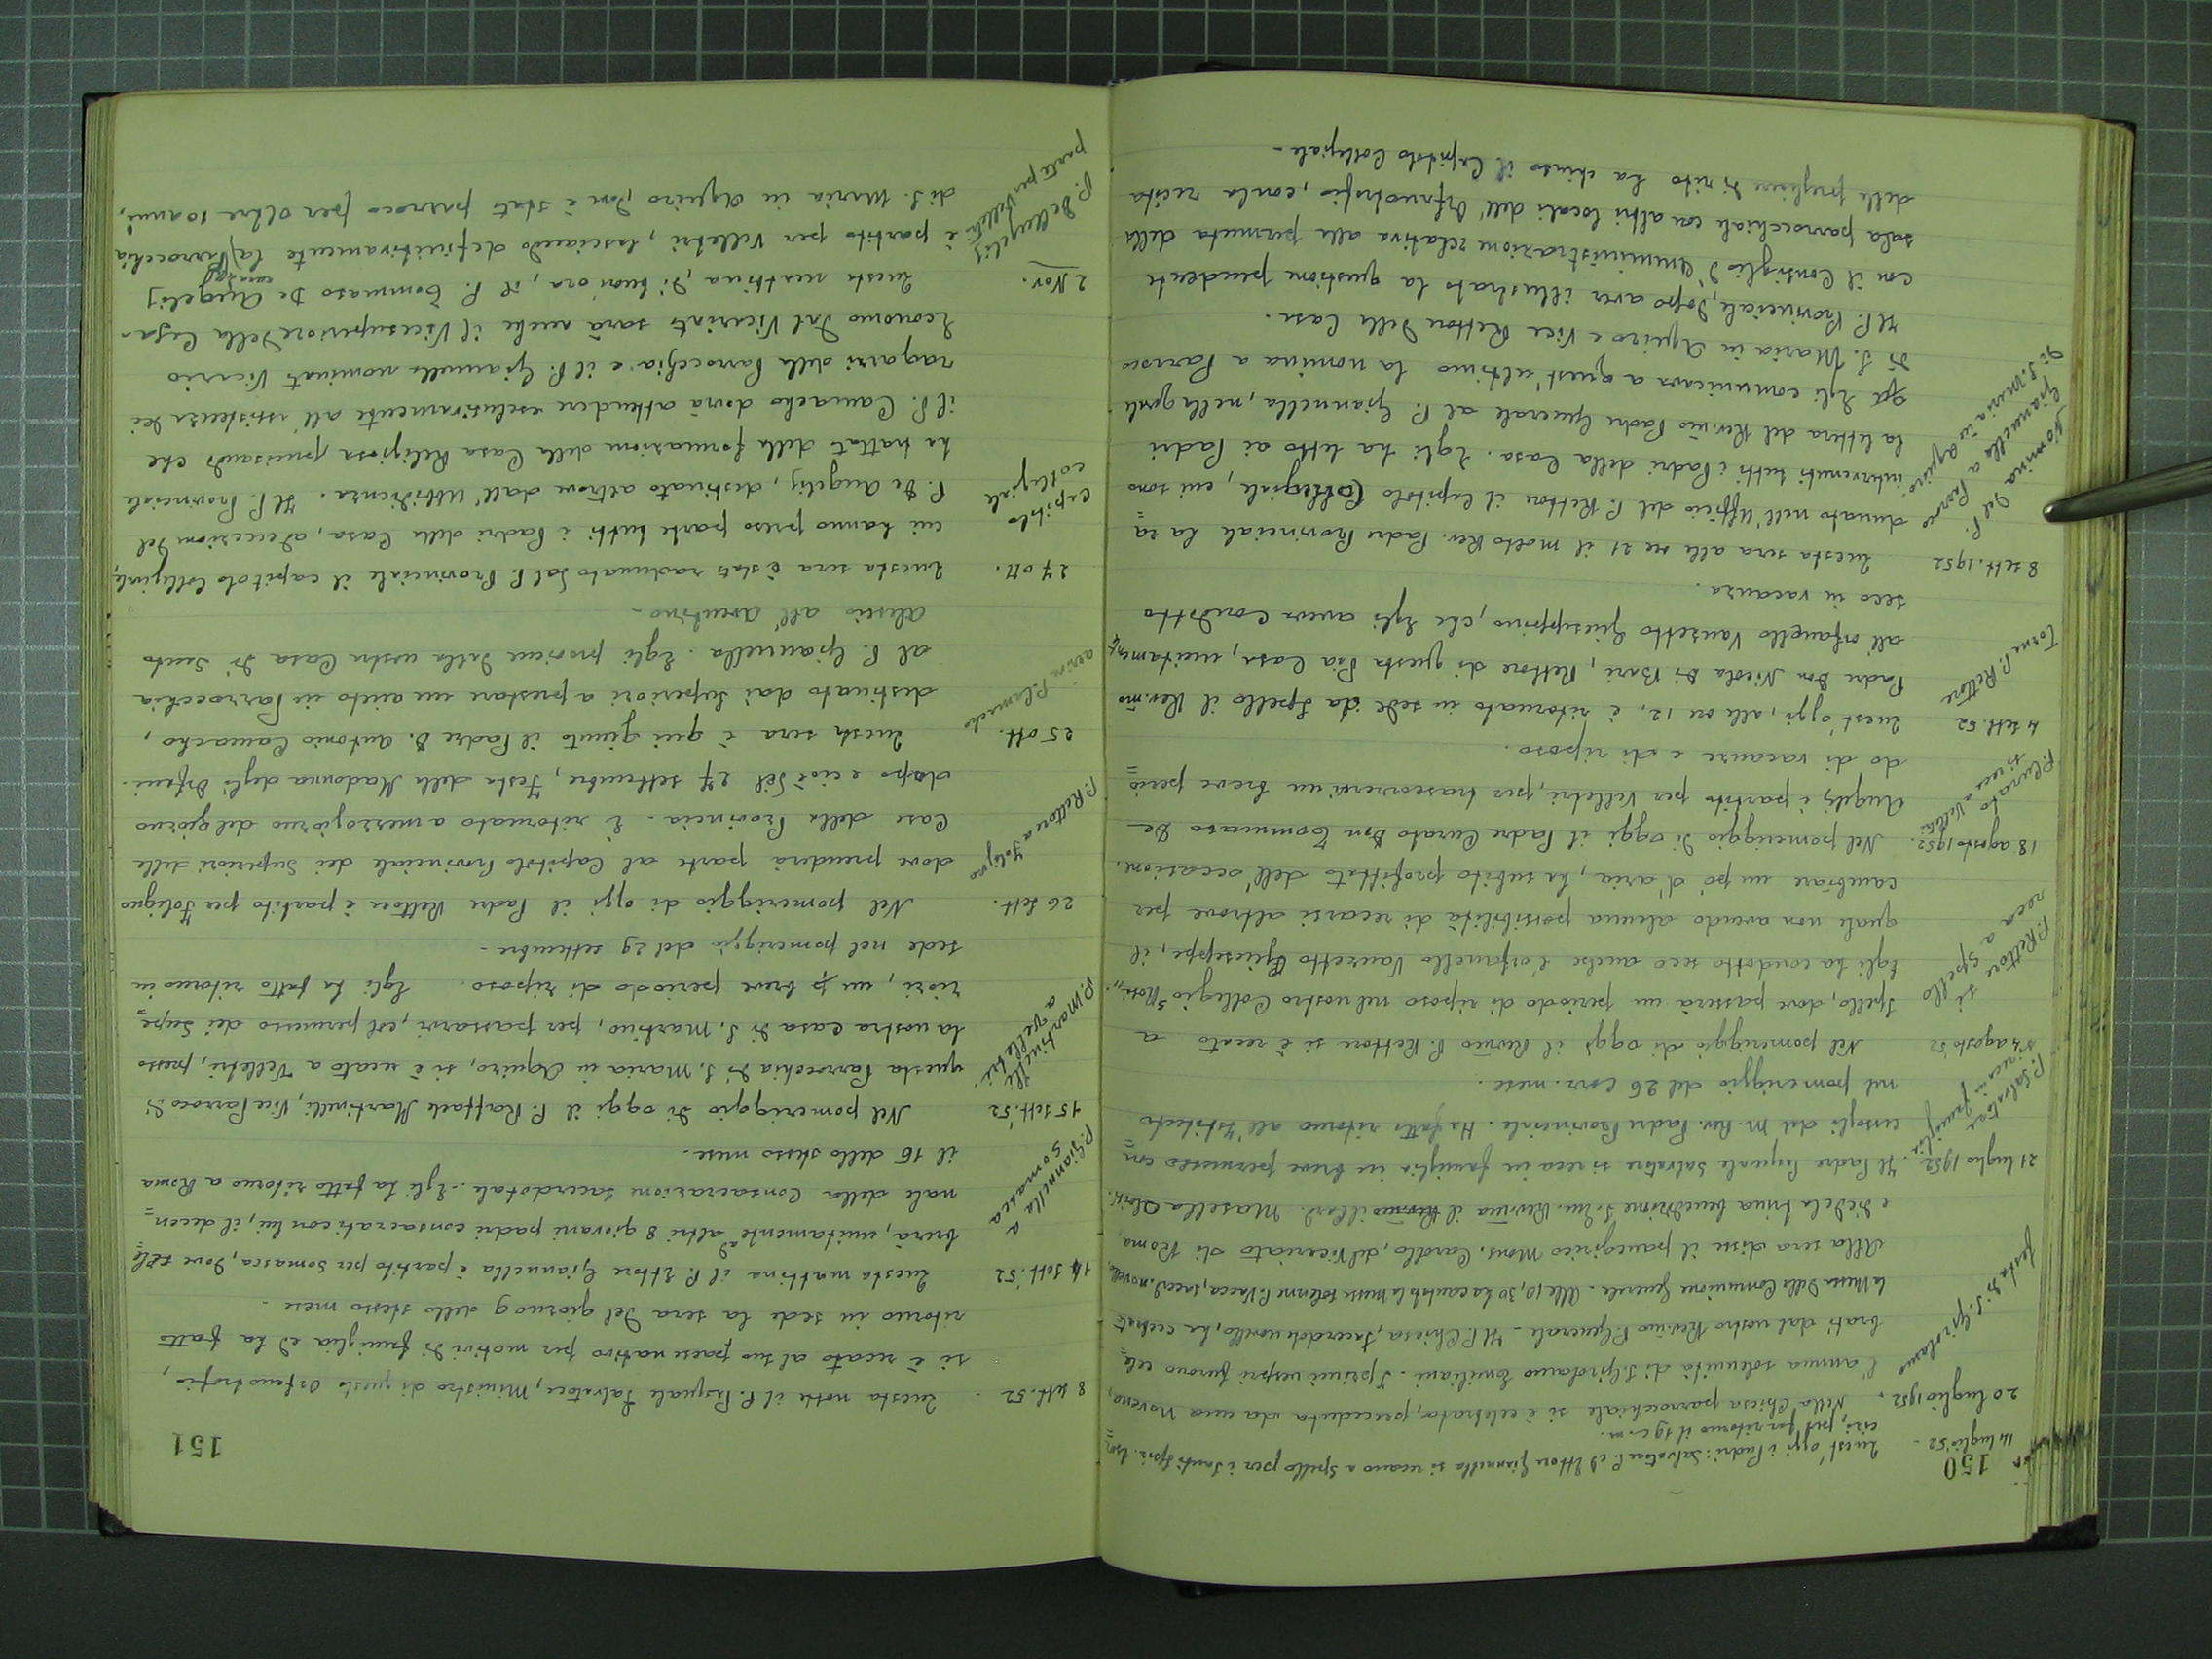 150
14 luglio '52 -
Quest'oggi i Padri: Salvatore P. ed Ettore Giannella si recano a Spello per i Santi Spir. Eser=
cizi, per far ritorno il 19 c. m.
20 luglio 1952.
Festa di S. Girolamo
Nella Chiesa parrocchiale si è celebrata, preceduta da una novena,
l'annua solennità di S. Girolamo Emiliani. I primi vespri furono cele=
brati dal nostro Rev.mo P. Generale - Il P. Chiesa, Sacerdote novello, ha celebrato
la Messa della Comunione Generale. Alle 10,30 ha cantato la messa solenne P. Vacca, sacerd. novello.
Alla sera disse il panegirico Mons. Cardllo, del Vicariato di Roma,
e diede la trina benedizione S. Em. Rev.ma il Card. Masella Aloisi.
21 luglio 1952.
P. Salvatore si reca in famiglia
Il Padre Pasquale Salvatore si reca in famiglia in breve permesso con=
cessogli dal M. Rev. Padre Provinciale. Ha fatto ritorno all'Istituto
nel pomeriggio del 26 corr. mese.
P. Rettore si reca a Spello
Nel pomeriggio di oggi il Rev.mo P. Rettore si è recato a
Spello, dove passerà un periodo di riposo nel nostro Collegio
Egli ha condotto seco anche l'orfanello Vanzetto Giuseppe, il
quale non avendo alcuna possibilità di recarsi altrove per
cambiare un pò d'aria, ha subito profittato dell'occasione.
18 agosto 1952.
P. Curato si reca a Velletri
Nel pomeriggio di oggi il Padre Curato Don Tommaso De
Angelis è partito per Velletri, per trascorrervi un breve perio=
do di vacanze e di riposo.
4 sett. 52
Torna P. Rettore
Quest'oggi, alle ore 12, è ritornato in sede da Spello il Rev.mo
Padre Don Nicola Di Bari, Rettore di questa Pia Casa, unitamente
all'orfanello Vanzetto Giuseppino, che Egli aveva condotto
seco in vacanza.
8 sett. 1952
Nomina del P. Giannella a Parroco di S. Maria in Aquiro.
Questa sera alle ore 21 il molto Rev. Padre Provinciale ha ra=
dunato nell'Ufficio del P. Rettore il Capitolo Collegiale, cui sono
intervenuti tutti i Padri della Casa. Egli ha letto ai Padri
la lettera del Rev.mo Padre Generale al P. Giannella, nella quale
Egli comunicava a quest'ultimo la nomina a Parroco
di S. Maria in Aquiro e Vice Rettore della Casa.
Il P. Provinciale, dopo aver illustrato la questione pendente
con il Consiglio d'Amministrazione relativa alla permuta della
sala parrocchiale con altri locali dell'Orfanotrofio, con la recita
delle preghiere di rito ha chiuso il Capitolo Collegiale -
151
8 sett. 52.
Questa notte il P. Pasquale Salvatore, Ministro di questo Orfanotrofio,
si è recato al suo paese nativo per motivi di famiglia ed ha fatto
ritorno in sede la sera del giorno 9 dello stesso mese -
14 sett. '52
P. Giannella a Somasca
Questa mattina il P. Ettore Giannella è partito per Somasca, dove cele=
brerà, unitamente ad altri 8 giovani padri consacrati con lui, il decen=
nale della Consacrazione sacerdotale - Egli ha fatto ritorno a Roma
il 16 dello stesso mese.
15 sett. 52
P. Martinelli a Velletri.
Nel pomeriggio di oggi il P. Raffaele Martinelli, Vice Parroco di
questa Parrocchia di S. Maria in Aquiro, si è recato a Velletri, presso
la nostra Casa di S. Martino, per passarvi, col permesso dei Supe=
riori, un breve periodo di riposo. Egli ha fatto ritorno in
sede nel pomeriggio del 29 settembre -
26 sett.
P. Rettore a Foligno
Nel pomeriggio di oggi il Padre Rettore è partito per Foligno
dove prenderà parte al Capitolo Provinciale dei Superiori delle
Case della Provincia - È ritornato a mezzogiorno del giorno
dopo e cioè del 27 settembre, Festa della Madonna degli Orfani.
25 ott.
arriva P. Camacho
Questa sera è qui giunto il Padre D. Antonio Camacho,
destinato dai Superiori a prestare un aiuto in Parrocchia
al P. Giannella. Egli proviene dalla nostra Casa di Santo
Alessio all'Aventino -
27 ott.
Capitolo collegiale
Questa sera è stato radunato dal P. Provinciale il capitolo collegiale,
cui hanno preso parte tutti i Padri della Casa, ad eccezione del
P. De Angelis, destinato altrove dall'Ubbidienza. Il P. Provinciale
ha trattato della formazione della Casa Religiosa precisando che
il P. Camacho dovrà attendere esclusivamente all'assistenza dei
ragazzi della Parrocchia e il P. Giannella nominato Vicario
Economo dal Vicariato sarà anche il Vicesuperiore della Casa -
2 Nov.
P. De Angelis parte per Velletri
Questa mattina, di buon ora, il P. Tommaso De Angelis
è partito per Velletri, lasciando definitivamente la Parrocchia
di S. Maria in Aquiro, don è stato parroco per oltre 10 anni,